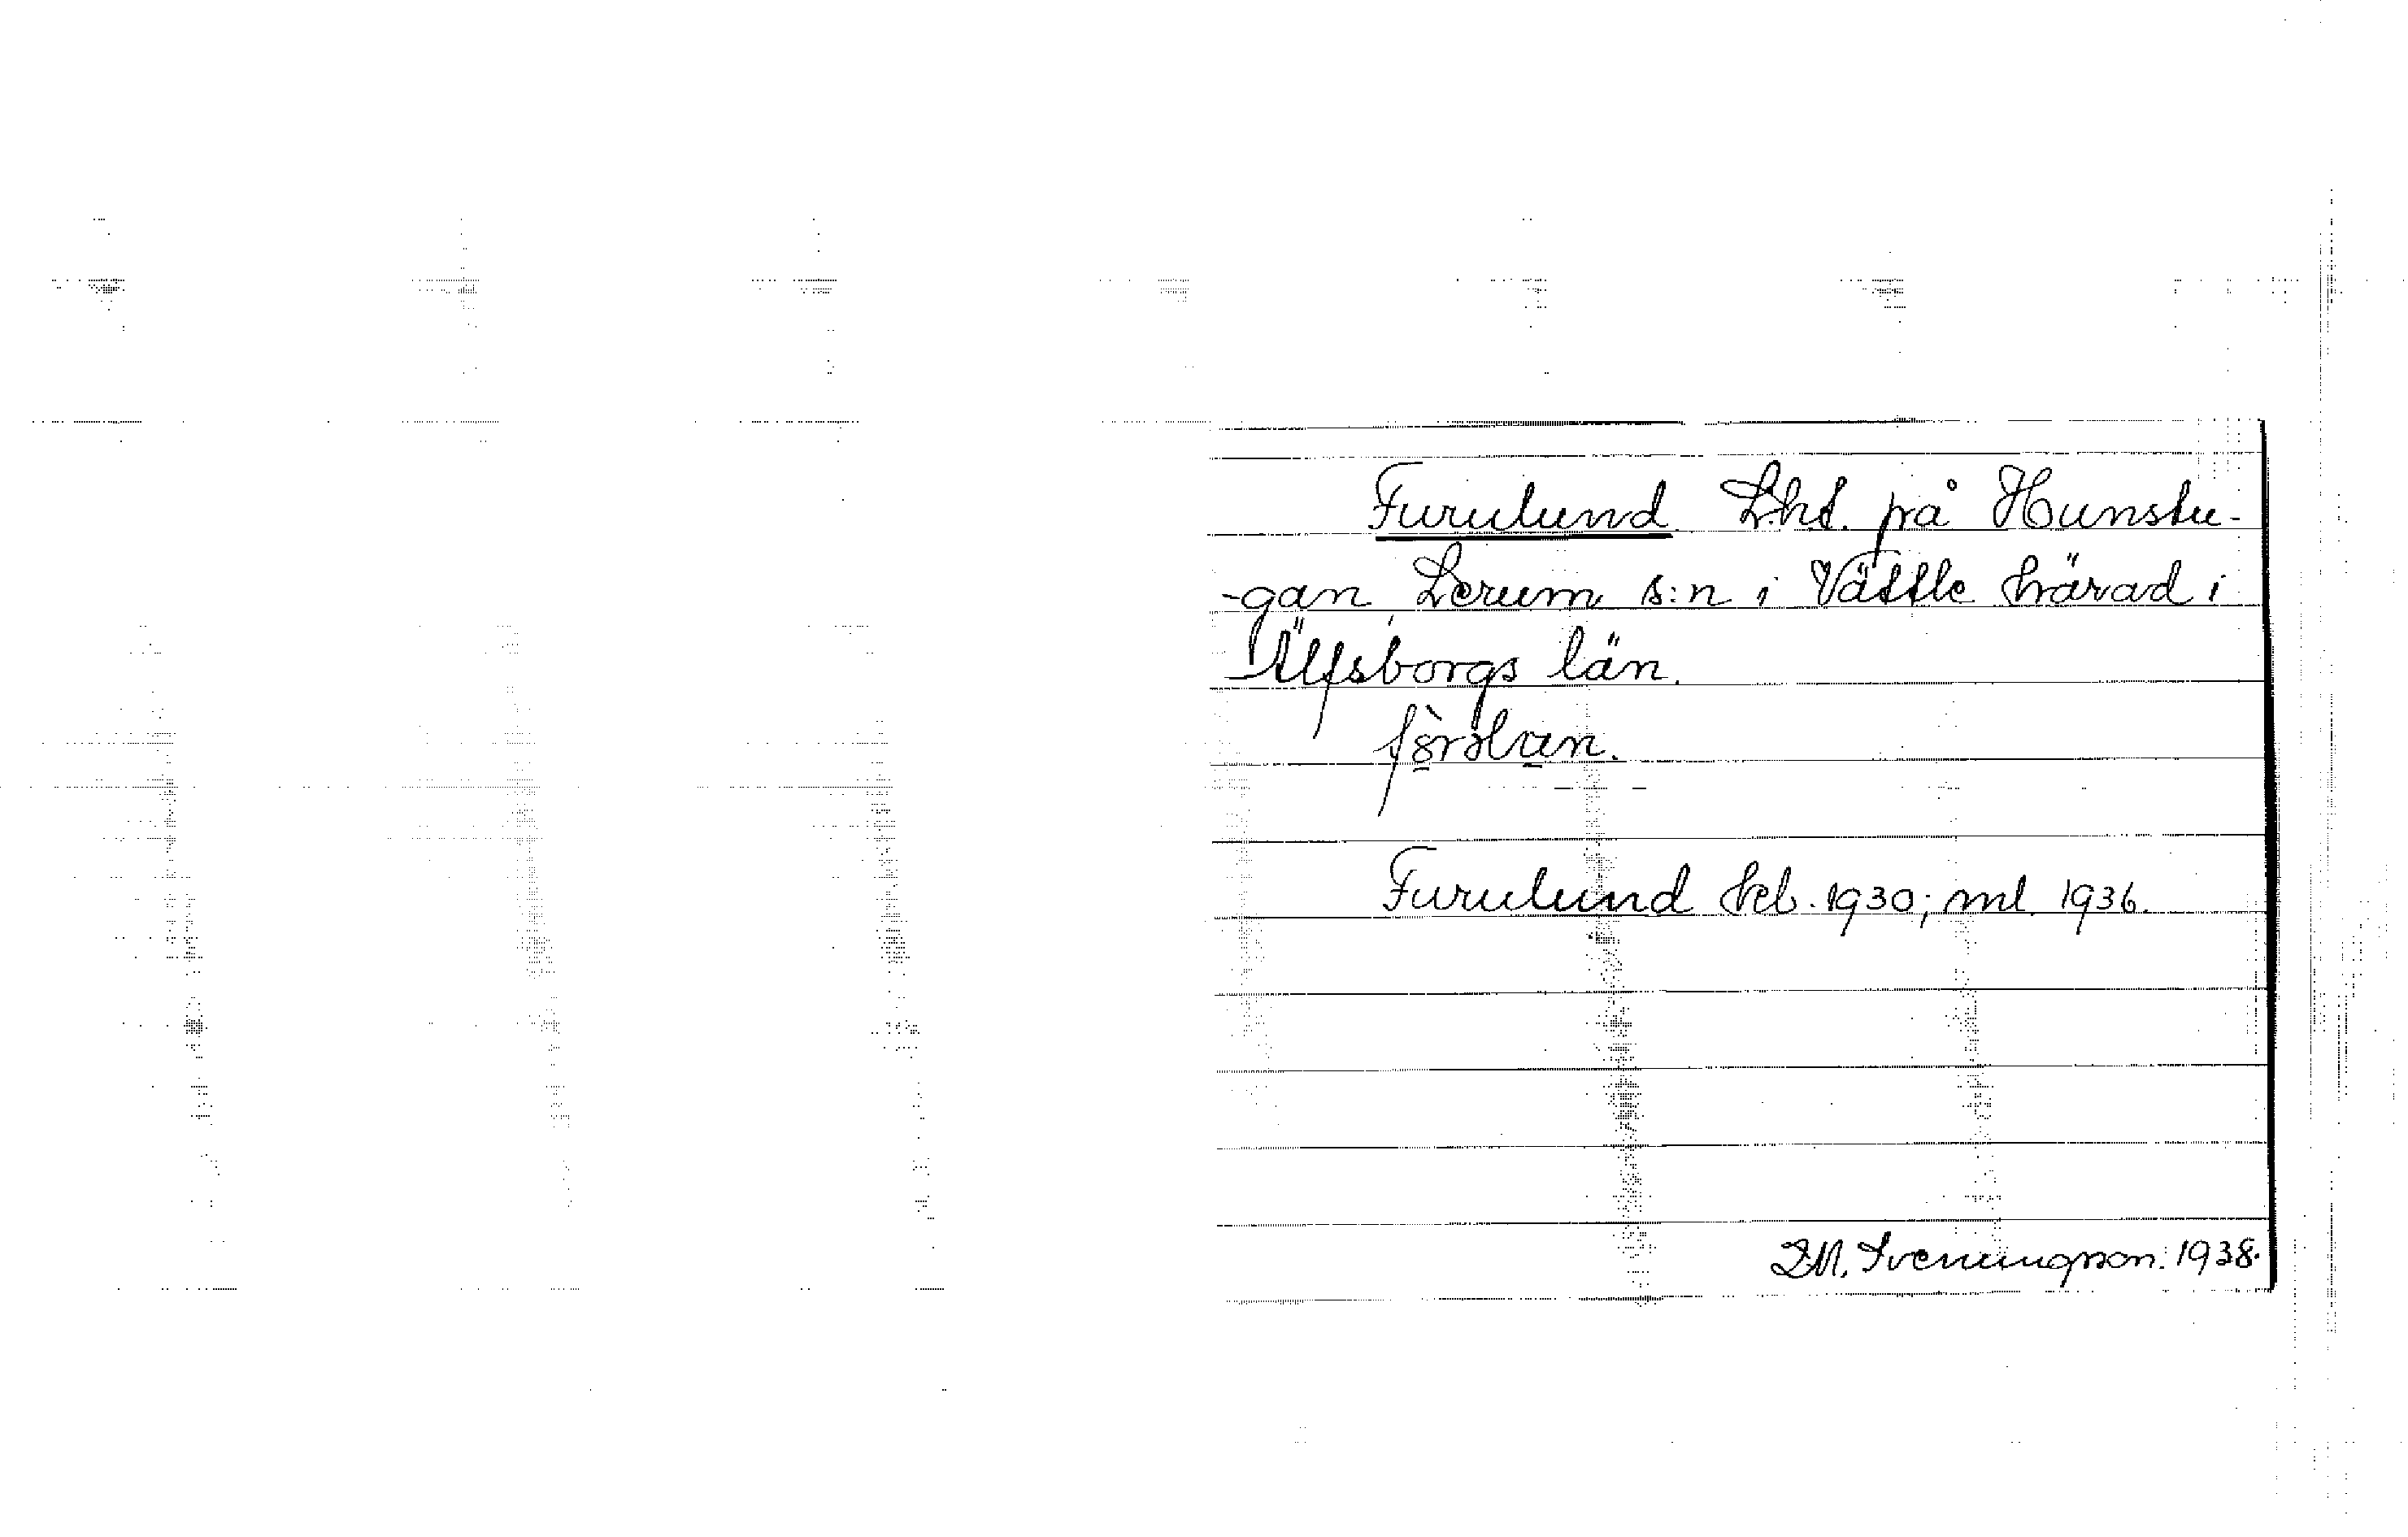 Furulund. Lht. på Hunstu-
-gan, Lerum s:n i Vättle härad i
Älfsborgs län.
Furulund hcb. 1930; ml. 1936.
D.M. Svenungsson. 1938.